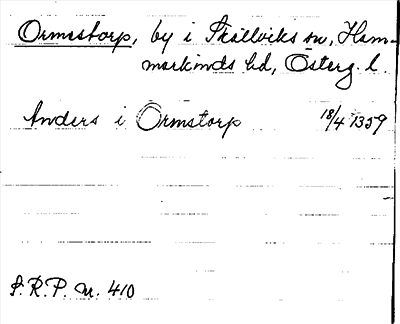 Ormstorp, by i Skällviks sn, Ham-
markinds hd, Österg. l.
Anders i Ormstorp 18/4 1359
S.R.P. nr. 410